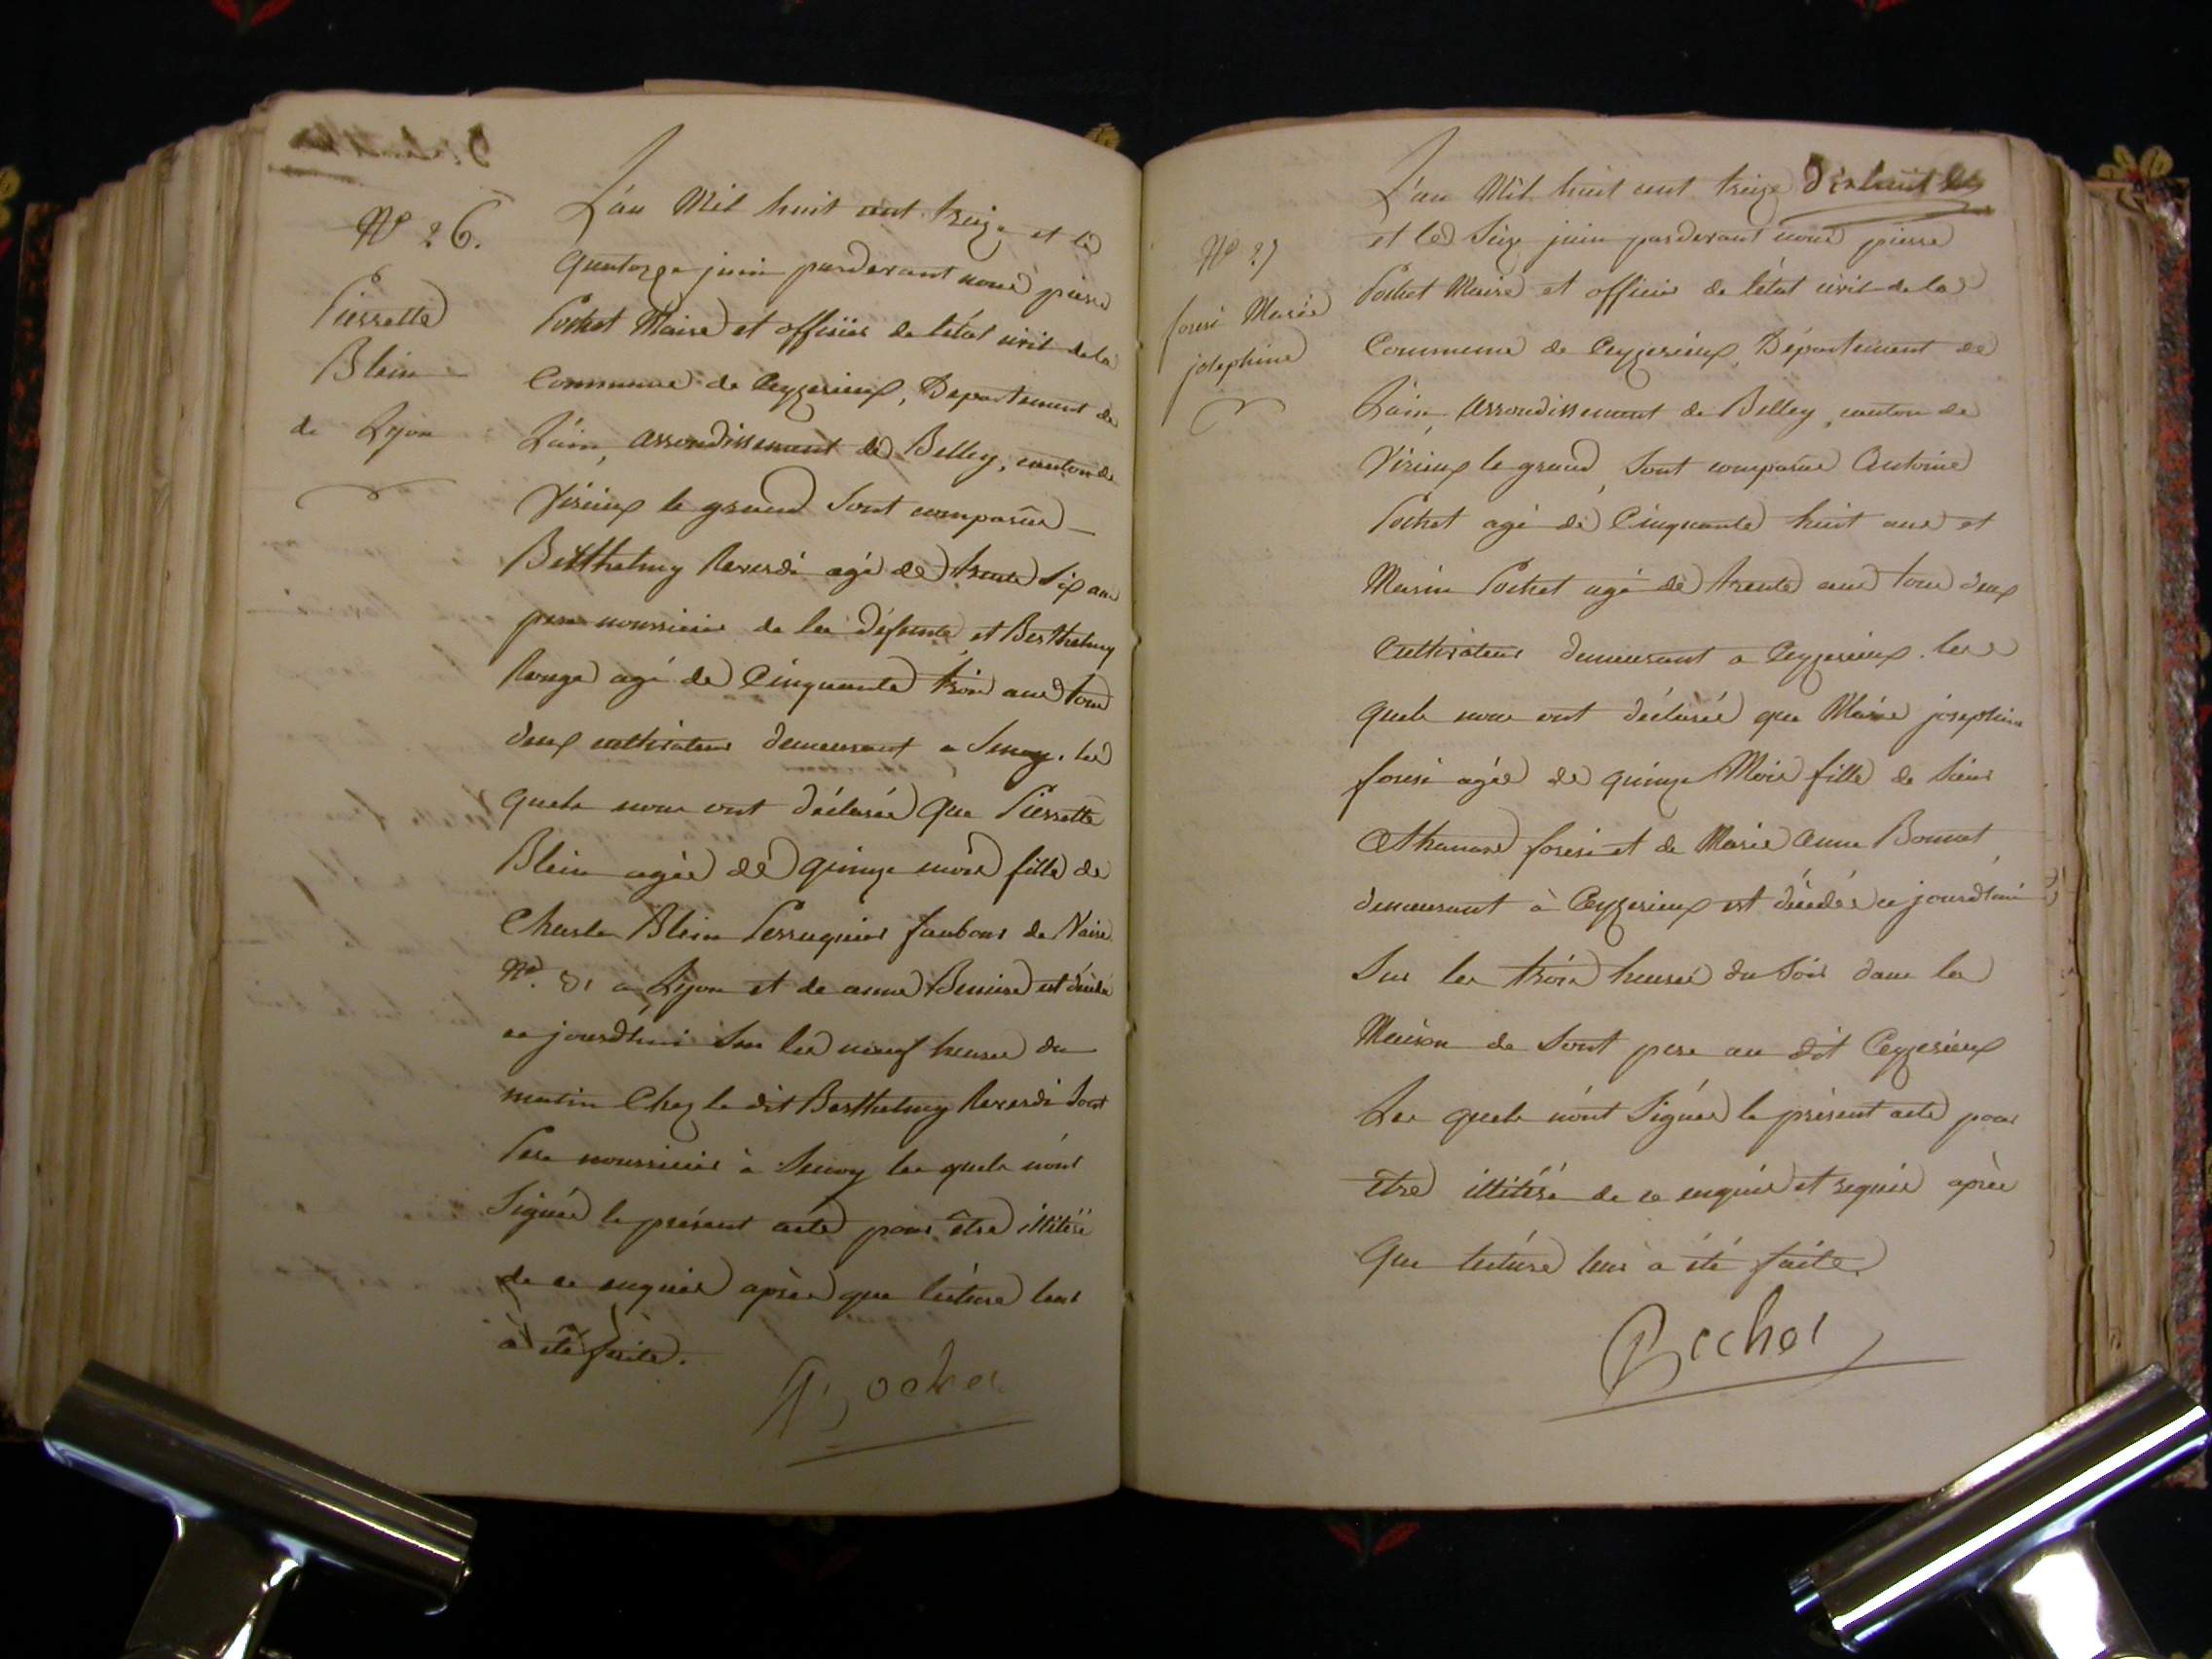 N° 26.
Pierrette
Blein
de Lyon
L'an Mil huit cent treize et le
quatorze juin pardevant nous pierre
Pochet Maire et officier de l'état civil de la
Commune de Ceyzerieux, Departement de
L'ain, arrondissement de Belley, canton de
Virieux le grand sont comparûs
Berthelmy Reverdi agé de trente six ans
pere nourricier de la défunte et Berthelmy
Rouge agé de Cinquante trois ans tous
deux cultivateurs demeurant a Senoy. les
quels nous ont déclarés que Pierrette
Blein agée de quinze mois fille de
Charles Blein Perruquier faubour de Vaise
N°. 31 a Lyon et de anne est décédé
ce jourd'hui sur les neuf heures du
matin Chez le dit Berthelmy Reverdi sont
Pere nourricier à Senoy les quels n'ont
Signés le présent acte pour être illitéré
de ce enquis après que lecture leur
à été faite.
Pochet
Dixhuit
N° 27
foresi Marie
josephine
L'an Mil huit cent treize
et les Seize juin pardevant nous pierre
Pochet Maire et officier de l'état civil de la
Commune de Ceyzerieux, Département de
L'ain, arrondissement de Belley, canton de
Virieux le grand, sont comparûs Antoine
Pochet agé de Cinquante huit ans et
Marin Pochet agé de trente ans tous deux
Cultivateurs demeurant a Ceyzerieux. les
quels nous ont déclarés que Marie josephine
foresi agée de quinze Mois fille de Sieur
Athanase foresi et de Marie Anne Bonnet
demeurant à Ceyzerieux est décédés ce jourd'hui
Sur les trois heures du Soir dans la
Maison de Sont pere au dit Ceyzerieux
Les quels n'ont Signés le présent acte pour
être illitéré de ce enquis et requis après
Que lecture leur à été faite.
Pochet